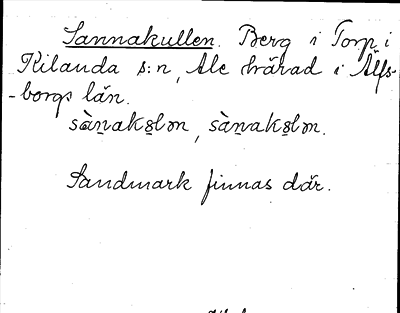 Sannakullen. Berg i Torp i
Kilanda s:n, Ale härad i Älfs-
-borgs län.
sàn̲aks̲lən, sàn̲aks̲lən.
Sandmark finnas där.